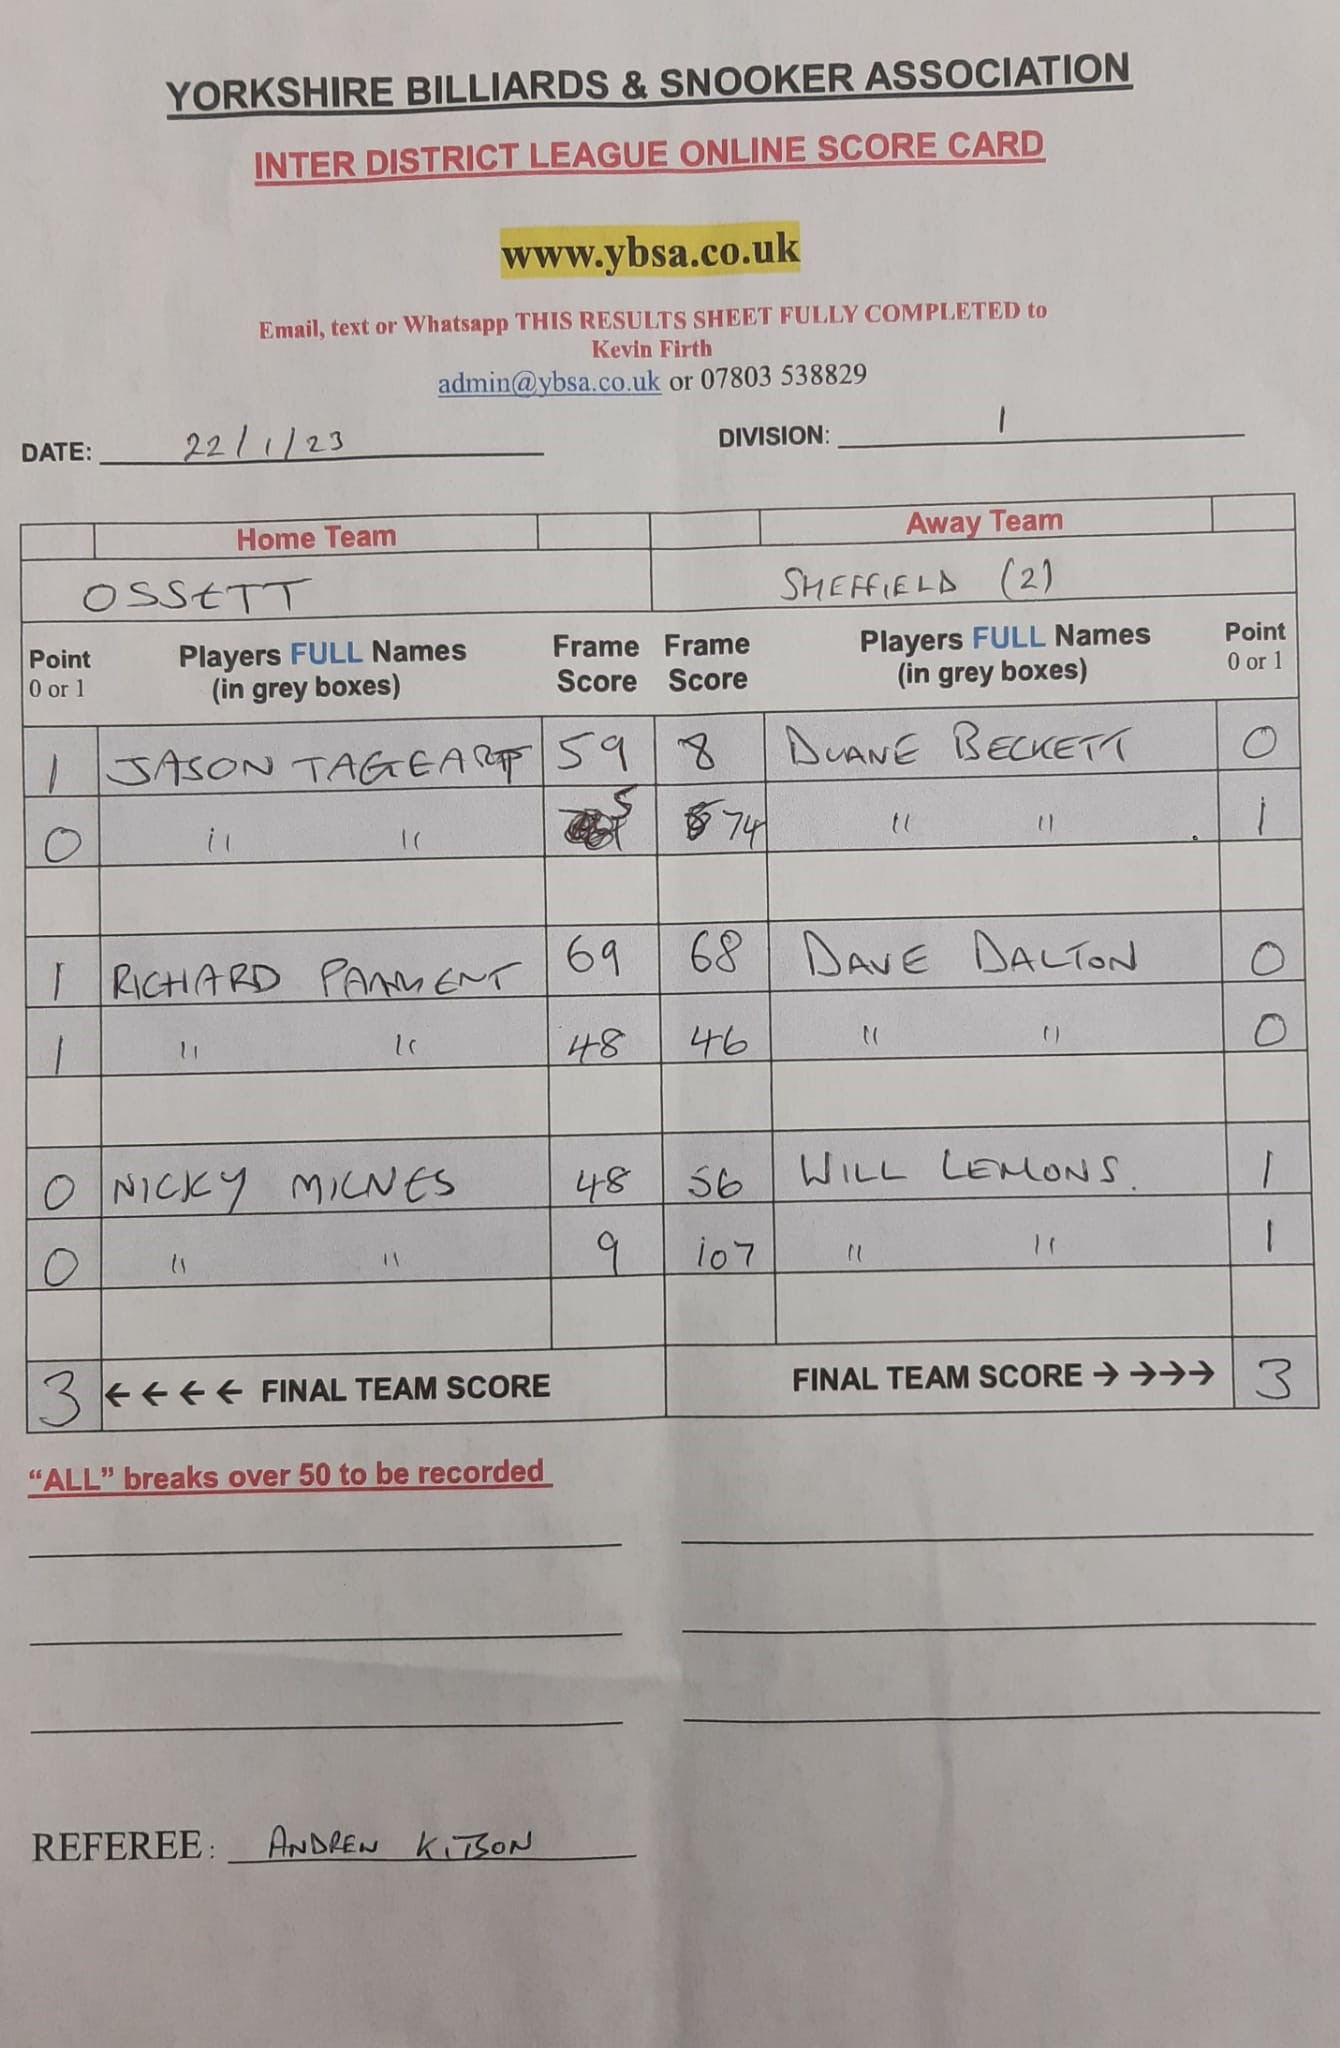 YORKSHIRE BILLIARDS & SNOOKER ASSOCIATION
INTER DISTRICT LEAGUE ONLINE SCORE CARD
www.ybsa.co.uk
Email, text or Whatsapp THIS RESULTS SHEET FULLY COMPLETED to
Kevin Firth
admin@ybsa.co.uk or 07803 538829
DATE: 22/1/23 DIVISION: 1
Home Team Away Team
OSSETT SHEFFIELD (2)
Point 0 or 1 Players FULL Names (in grey boxes) Frame Score Frame Score Players FULL Names (in grey boxes) Point 0 or 1
1 JASON TAGGEART 59 8 DUANE BECKETT 0
0 " " 5 74 " " 1
1 RICHARD PAMMENT 69 68 DAVE DALTON 0
1 " " 48 46 " " 0
0 NICKY MILNES 48 56 WILL LEMONS. 1
0 " " 9 107 " " 1
3 ←←←← FINAL TEAM SCORE FINAL TEAM SCORE →→→→ 3
"ALL" breaks over 50 to be recorded
REFEREE: ANDREW KITSON